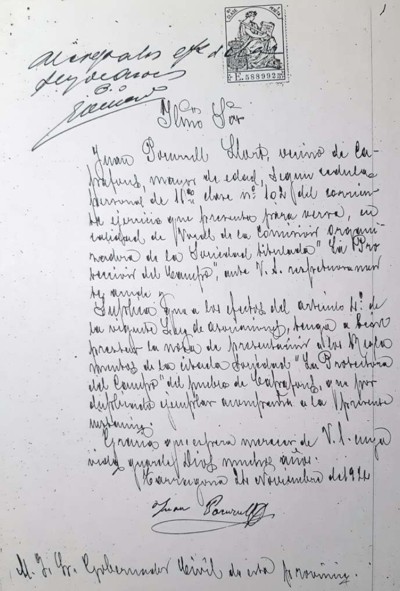 E.588992
1
a los efectos de la
ley de
Ilmo Sor
Juan Pocurull Llort, vecino de Ca-
pafons, mayor de edad, según cédula
personal de 11ª clase nº 102 del corrien-
te ejercicio que presenta para verse, en
calidad de Vocal de la Comisión organi-
zadora de la Sociedad titulada "La Pro-
tección del Campo", ante V. S. respetuosamen-
te acude y
Suplica que a los efectos del artículo 4º de
la vigente Ley de asociaciones, tenga a bien
prestar la nota de presentación a los Regla-
mentos de la citada Sociedad "La Protectora
del Campo" del pueblo de Capafons, que por
duplicado ejemplar acompaña a la presente
instancia.
Gracia que espera merecer de V. S. cuya
vida guarde Dios muchos años.
Tarragona 24 Noviembre de 1924
Juan Pocurull
M. I. Sr. Gobernador Civil de esta provincia.